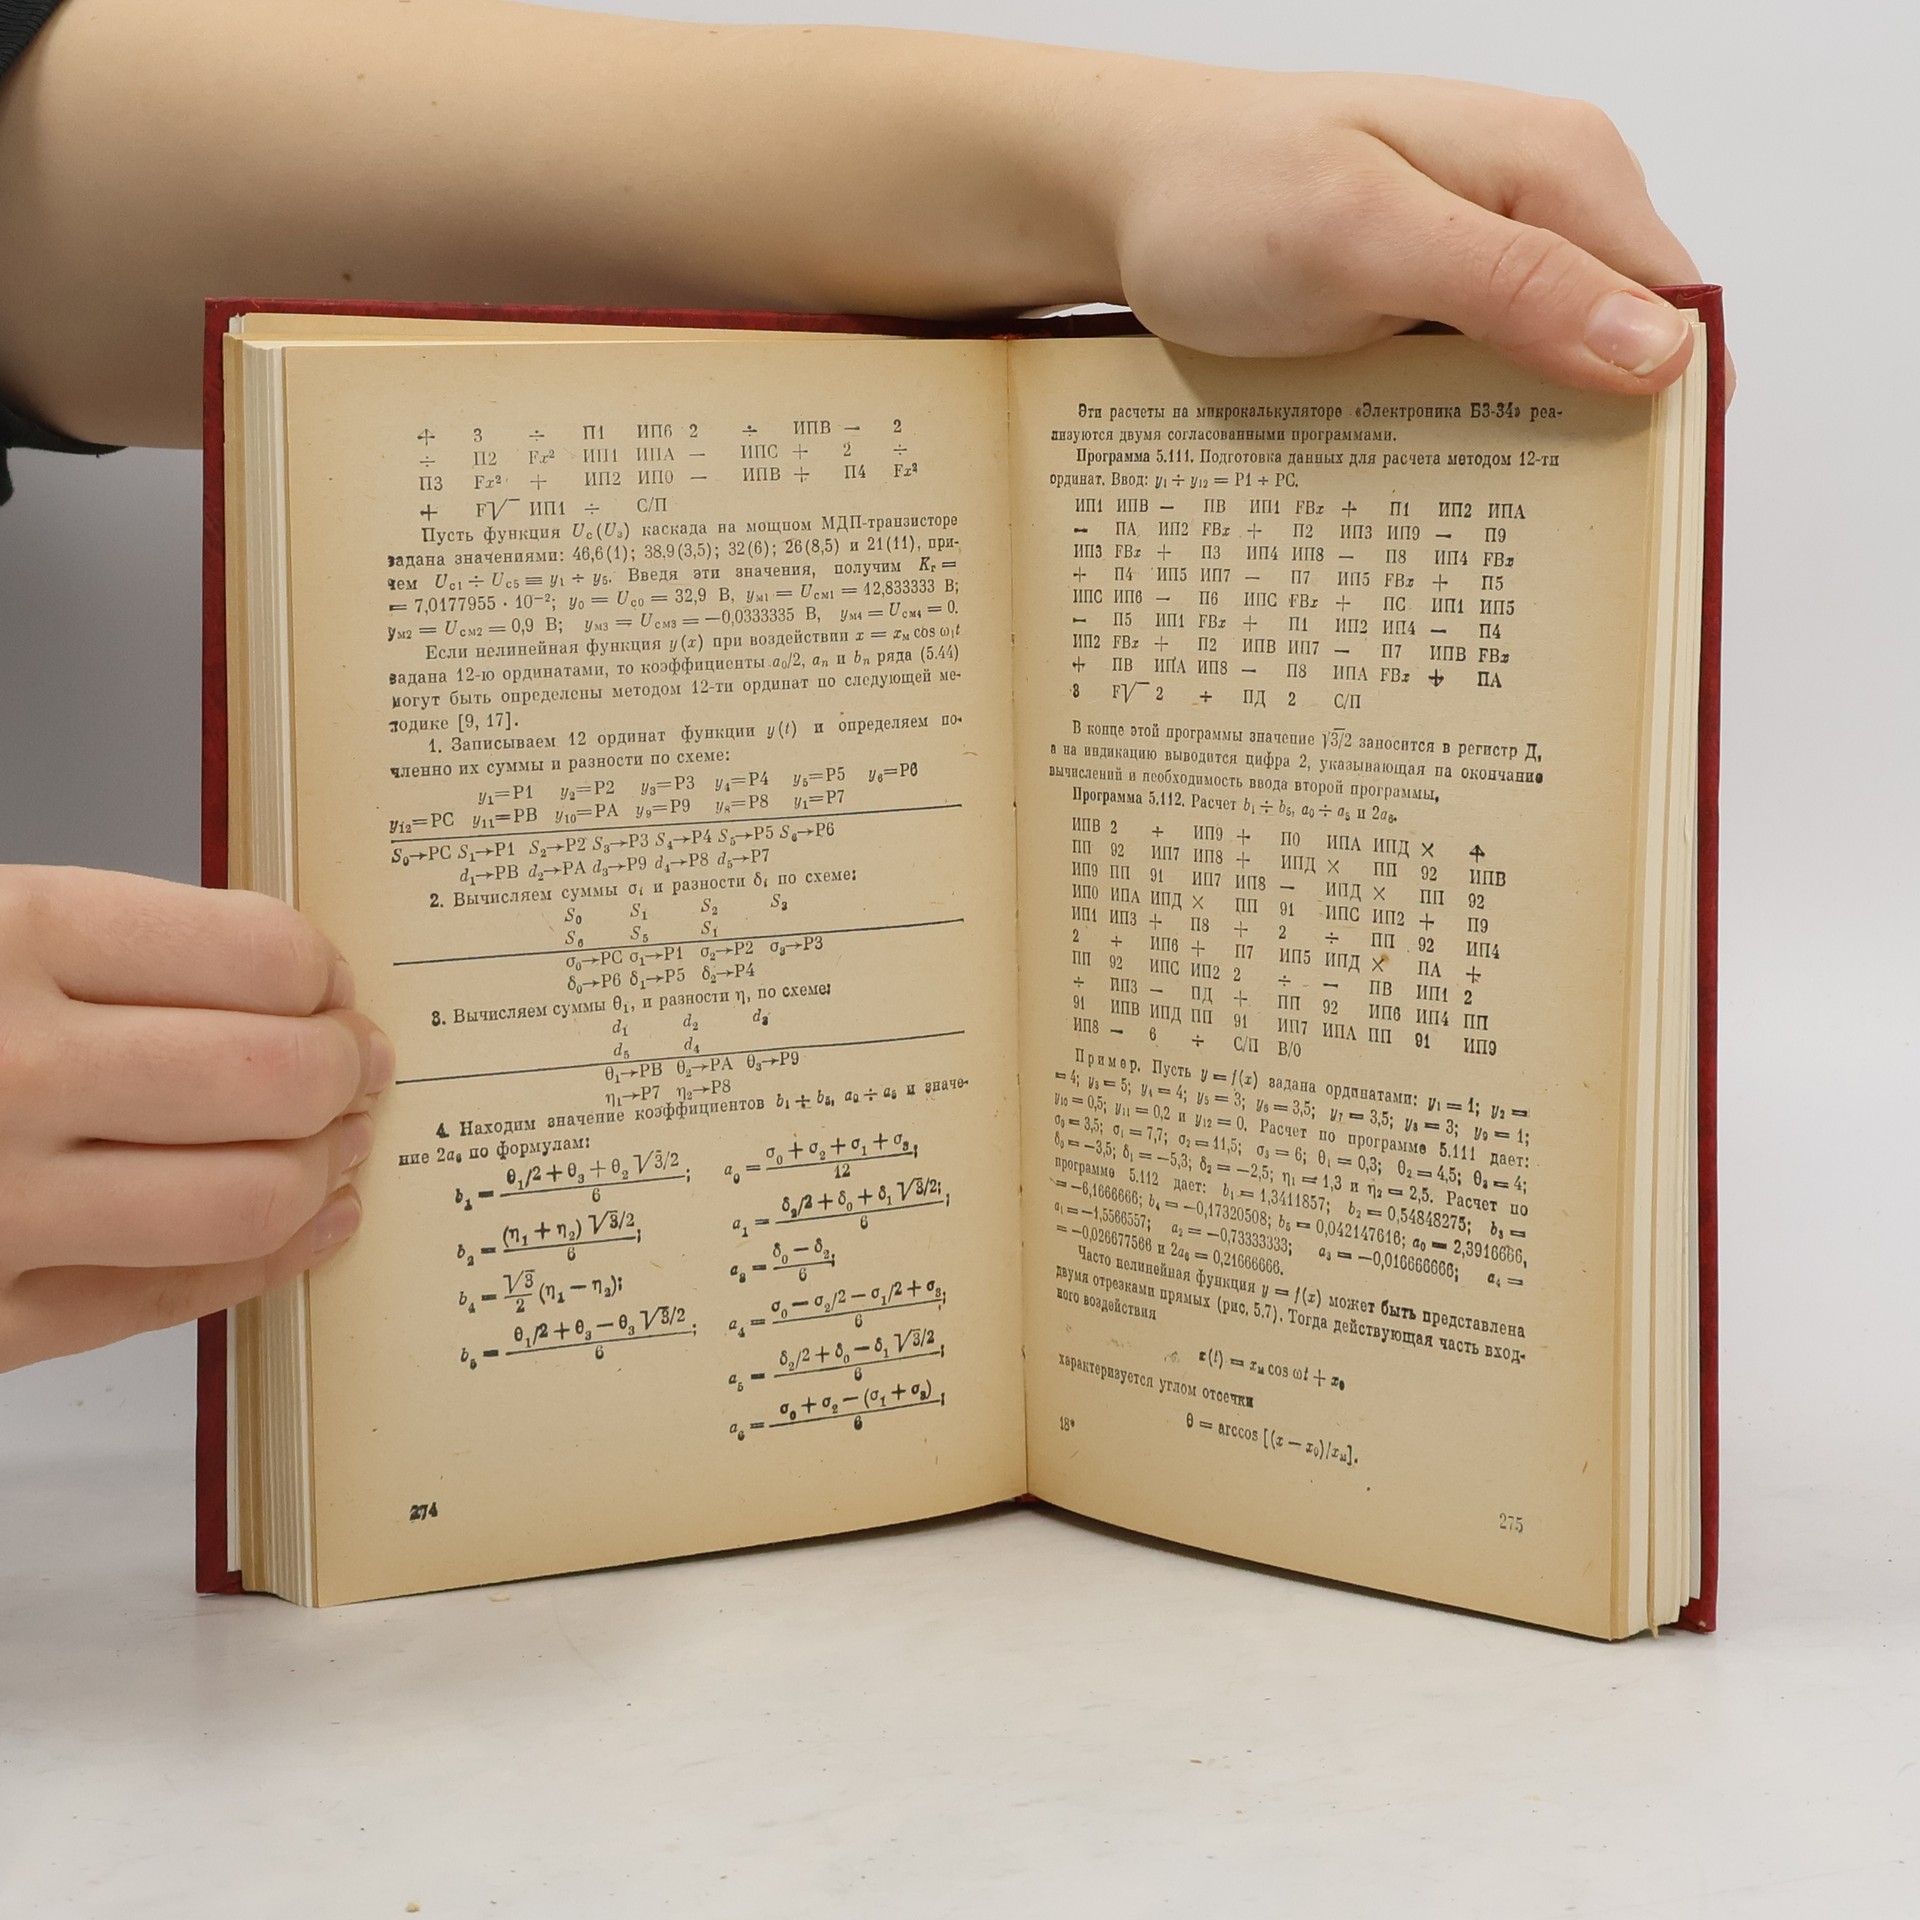 ↑ 3 ÷ П1 ИП6 2 ÷ ИПВ — 2
÷ П2 Fx² ИП1 ИПА — ИПС + 2 ÷
П3 Fx² + ИП2 ИП0 — ИПВ + П4 Fx²
+ F√‾ ИП1 ÷ С/П
Пусть функция U_c(U_з) каскада на мощном МДП-транзисторе
задана значениями: 46,6(1); 38,9(3,5); 32(6); 26(8,5) и 21(11), при-
чем U_c1 ÷ U_c5 ≡ y₁ ÷ y₅. Введя эти значения, получим K_г =
= 7,0177955 · 10⁻²; y₀ = U_c0 = 32,9 В, y_м1 = U_см1 = 12,833333 В;
y_м2 = U_см2 = 0,9 В; y_м3 = U_см3 = —0,0333335 В, y_м4 = U_см4 = 0.
Если нелинейная функция y(x) при воздействии x = x_м cos ω₁t
задана 12-ю ординатами, то коэффициенты a₀/2, aₙ и bₙ ряда (5.44)
могут быть определены методом 12-ти ординат по следующей ме-
тодике [9, 17].
1. Записываем 12 ординат функции y(t) и определяем по-
членно их суммы и разности по схеме:
y₁=P1 y₂=P2 y₃=P3 y₄=P4 y₅=P5 y₆=P6
y₁₂=PC y₁₁=PB y₁₀=PA y₉=P9 y₈=P8 y₁=P7
S₀→PC S₁→P1 S₂→P2 S₃→P3 S₄→P4 S₅→P5 S₆→P6
d₁→PB d₂→PA d₃→P9 d₄→P8 d₅→P7
2. Вычисляем суммы σᵢ и разности δᵢ по схеме:
S₀ S₁ S₂ S₃
S₆ S₅ S₁
σ₀→PC σ₁→P1 σ₂→P2 σ₃→P3
δ₀→P6 δ₁→P5 δ₂→P4
3. Вычисляем суммы θ₁, и разности η, по схеме:
d₁ d₂ d₃
d₅ d₄
θ₁→PB θ₂→PA θ₃→P9
η₁→P7 η₂→P8
4. Находим значение коэффициентов b₁ ÷ b₅, a₀ ÷ a₅ и значе-
ние 2a₆ по формулам:
b₁ = (θ₁/2 + θ₃ + θ₂ √3/2)/6; a₀ = (σ₀ + σ₂ + σ₁ + σ₃)/12;
b₂ = (η₁ + η₂) √3/2 / 6; a₁ = (δ₂/2 + δ₀ + δ₁ √3/2)/6;
b₄ = √3/2 (η₁ — η₂); a₃ = (δ₀ — δ₂)/6;
b₅ = (θ₁/2 + θ₃ — θ₃ √3/2)/6; a₄ = (σ₀ — σ₂/2 — σ₁/2 + σ₃)/6;
a₅ = (δ₂/2 + δ₀ — δ₁ √3/2)/6;
a₆ = (σ₀ + σ₂ — (σ₁ + σ₃))/6;
274
Эти расчеты на микрокалькуляторе «Электроника Б3-34» реа-
лизуются двумя согласованными программами.
Программа 5.111. Подготовка данных для расчета методом 12-ти
ординат. Ввод: y₁ ÷ y₁₂ = P1 ÷ PC.
ИП1 ИПВ — ПВ ИП1 FBx + П1 ИП2 ИПА
— ПА ИП2 FBx + П2 ИП3 ИП9 — П9
ИП3 FBx + П3 ИП4 ИП8 — П8 ИП4 FBx
+ П4 ИП5 ИП7 — П7 ИП5 FBx + П5
ИПС ИП6 — П6 ИПС FBx + ПС ИП1 ИП5
— П5 ИП1 FBx + П1 ИП2 ИП4 — П4
ИП2 FBx + П2 ИПВ ИП7 — П7 ИПВ FBx
+ ПВ ИПА ИП8 — П8 ИПА FBx + ПА
3 F√‾ 2 ÷ ПД 2 С/П
В конце этой программы значение √3/2 заносится в регистр Д,
а на индикацию выводится цифра 2, указывающая на окончание
вычислений и необходимость ввода второй программы,
Программа 5.112. Расчет b₁ ÷ b₅, a₀ ÷ a₅ и 2a₆.
ИПВ 2 ÷ ИП9 + П0 ИПА ИПД × ↑
ПП 92 ИП7 ИП8 + ИПД × ПП 92 ИПВ
ИП9 ПП 91 ИП7 ИП8 — ИПД × ПП 92
ИП0 ИПА ИПД × ПП 91 ИПС ИП2 + П9
ИП1 ИП3 + П8 + 2 ÷ ПП 92 ИП4
2 ÷ ИП6 + П7 ИП5 ИПД × ПА +
ПП 92 ИПС ИП2 2 ÷ — ПВ ИП1 2
÷ ИП3 — ПД + ПП 92 ИП6 ИП4 ПП
91 ИПВ ИПД ПП 91 ИП7 ИПА ПП 91 ИП9
ИП8 — 6 ÷ С/П В/0
Пример. Пусть y = f(x) задана ординатами: y₁ = 1; y₂ =
= 4; y₃ = 5; y₄ = 4; y₅ = 3; y₆ = 3,5; y₇ = 3,5; y₈ = 3; y₉ = 1;
y₁₀ = 0,5; y₁₁ = 0,2 и y₁₂ = 0. Расчет по программе 5.111 дает:
σ₀ = 3,5; σ₁ = 7,7; σ₂ = 11,5; σ₃ = 6; θ₁ = 0,3; θ₂ = 4,5; θ₃ = 4;
δ₀ = —3,5; δ₁ = —5,3; δ₂ = —2,5; η₁ = 1,3 и η₂ = 2,5. Расчет по
программе 5.112 дает: b₁ = 1,3411857; b₂ = 0,54848275; b₃ =
= —6,1666666; b₄ = —0,17320508; b₅ = 0,042147616; a₀ = 2,3916666,
a₁ = —1,5566557; a₂ = —0,73333333; a₃ = —0,016666666; a₄ =
= —0,026677566 и 2a₆ = 0,21666666.
Часто нелинейная функция y = f(x) может быть представлена
двумя отрезками прямых (рис. 5.7). Тогда действующая часть вход-
ного воздействия
x(t) = x_м cos ωt + x₀
характеризуется углом отсечки
θ = arccos [(x — x₀)/x_м].
18*
275